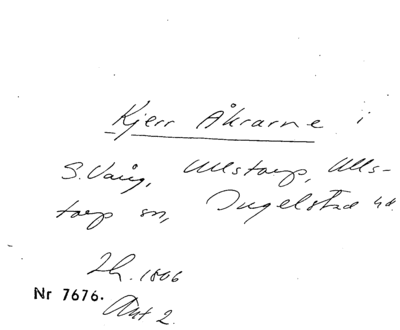 Kjerr Åkrarne i
S. Vång, Ullstorp, Ulls-
torp sn, Ingelstad hd.
Lh. 1806
Nr 7676.
Akt 2.